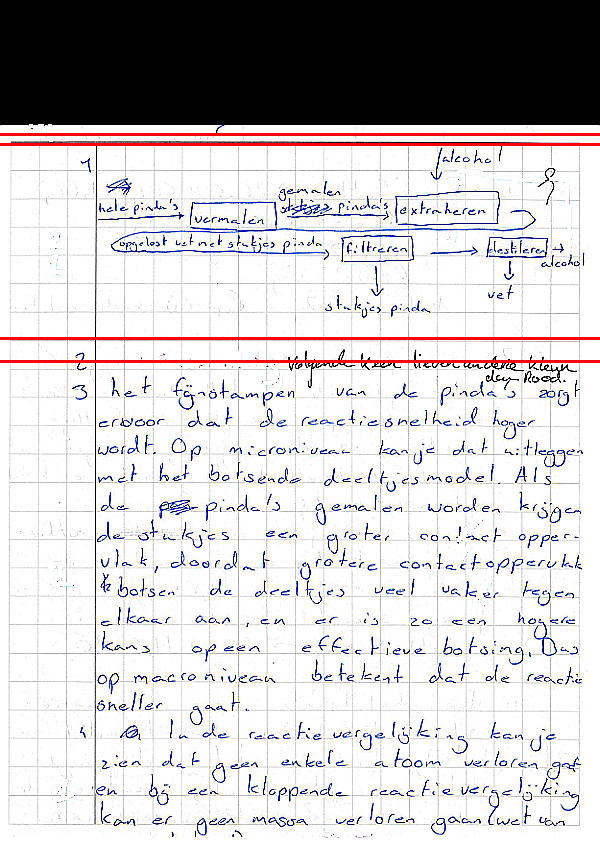 1
alcohol
gemalen
hele pinda's
vermalen
pinda's
extraheren
opgelost vet met stukjes pinda
filtreren
destileren
alcohol
vet
stukjes pinda
2
Volgende keer liever andere kleur
dan Rood.
3 het fijnstampen van de pinda's zorgt
ervoor dat de reactiesnelheid hoger
wordt. Op microniveau kan je dat uitleggen
met het botsende deeltjesmodel. Als
de pinda's gemalen worden krijgen
de stukjes een groter contact opper-
vlak, doordat grotere contactoppervlak
botsen de deeltjes veel vaker tegen
elkaar aan, en er is zo een hogere
kans op een effectieve botsing. Dus
op macroniveau betekent dat de reactie
sneller gaat.
4 In de reactievergelijking kan je
zien dat geen enkele atoom verloren gaat
en bij een kloppende reactievergelijking
kan er geen massa verloren gaan (wet van